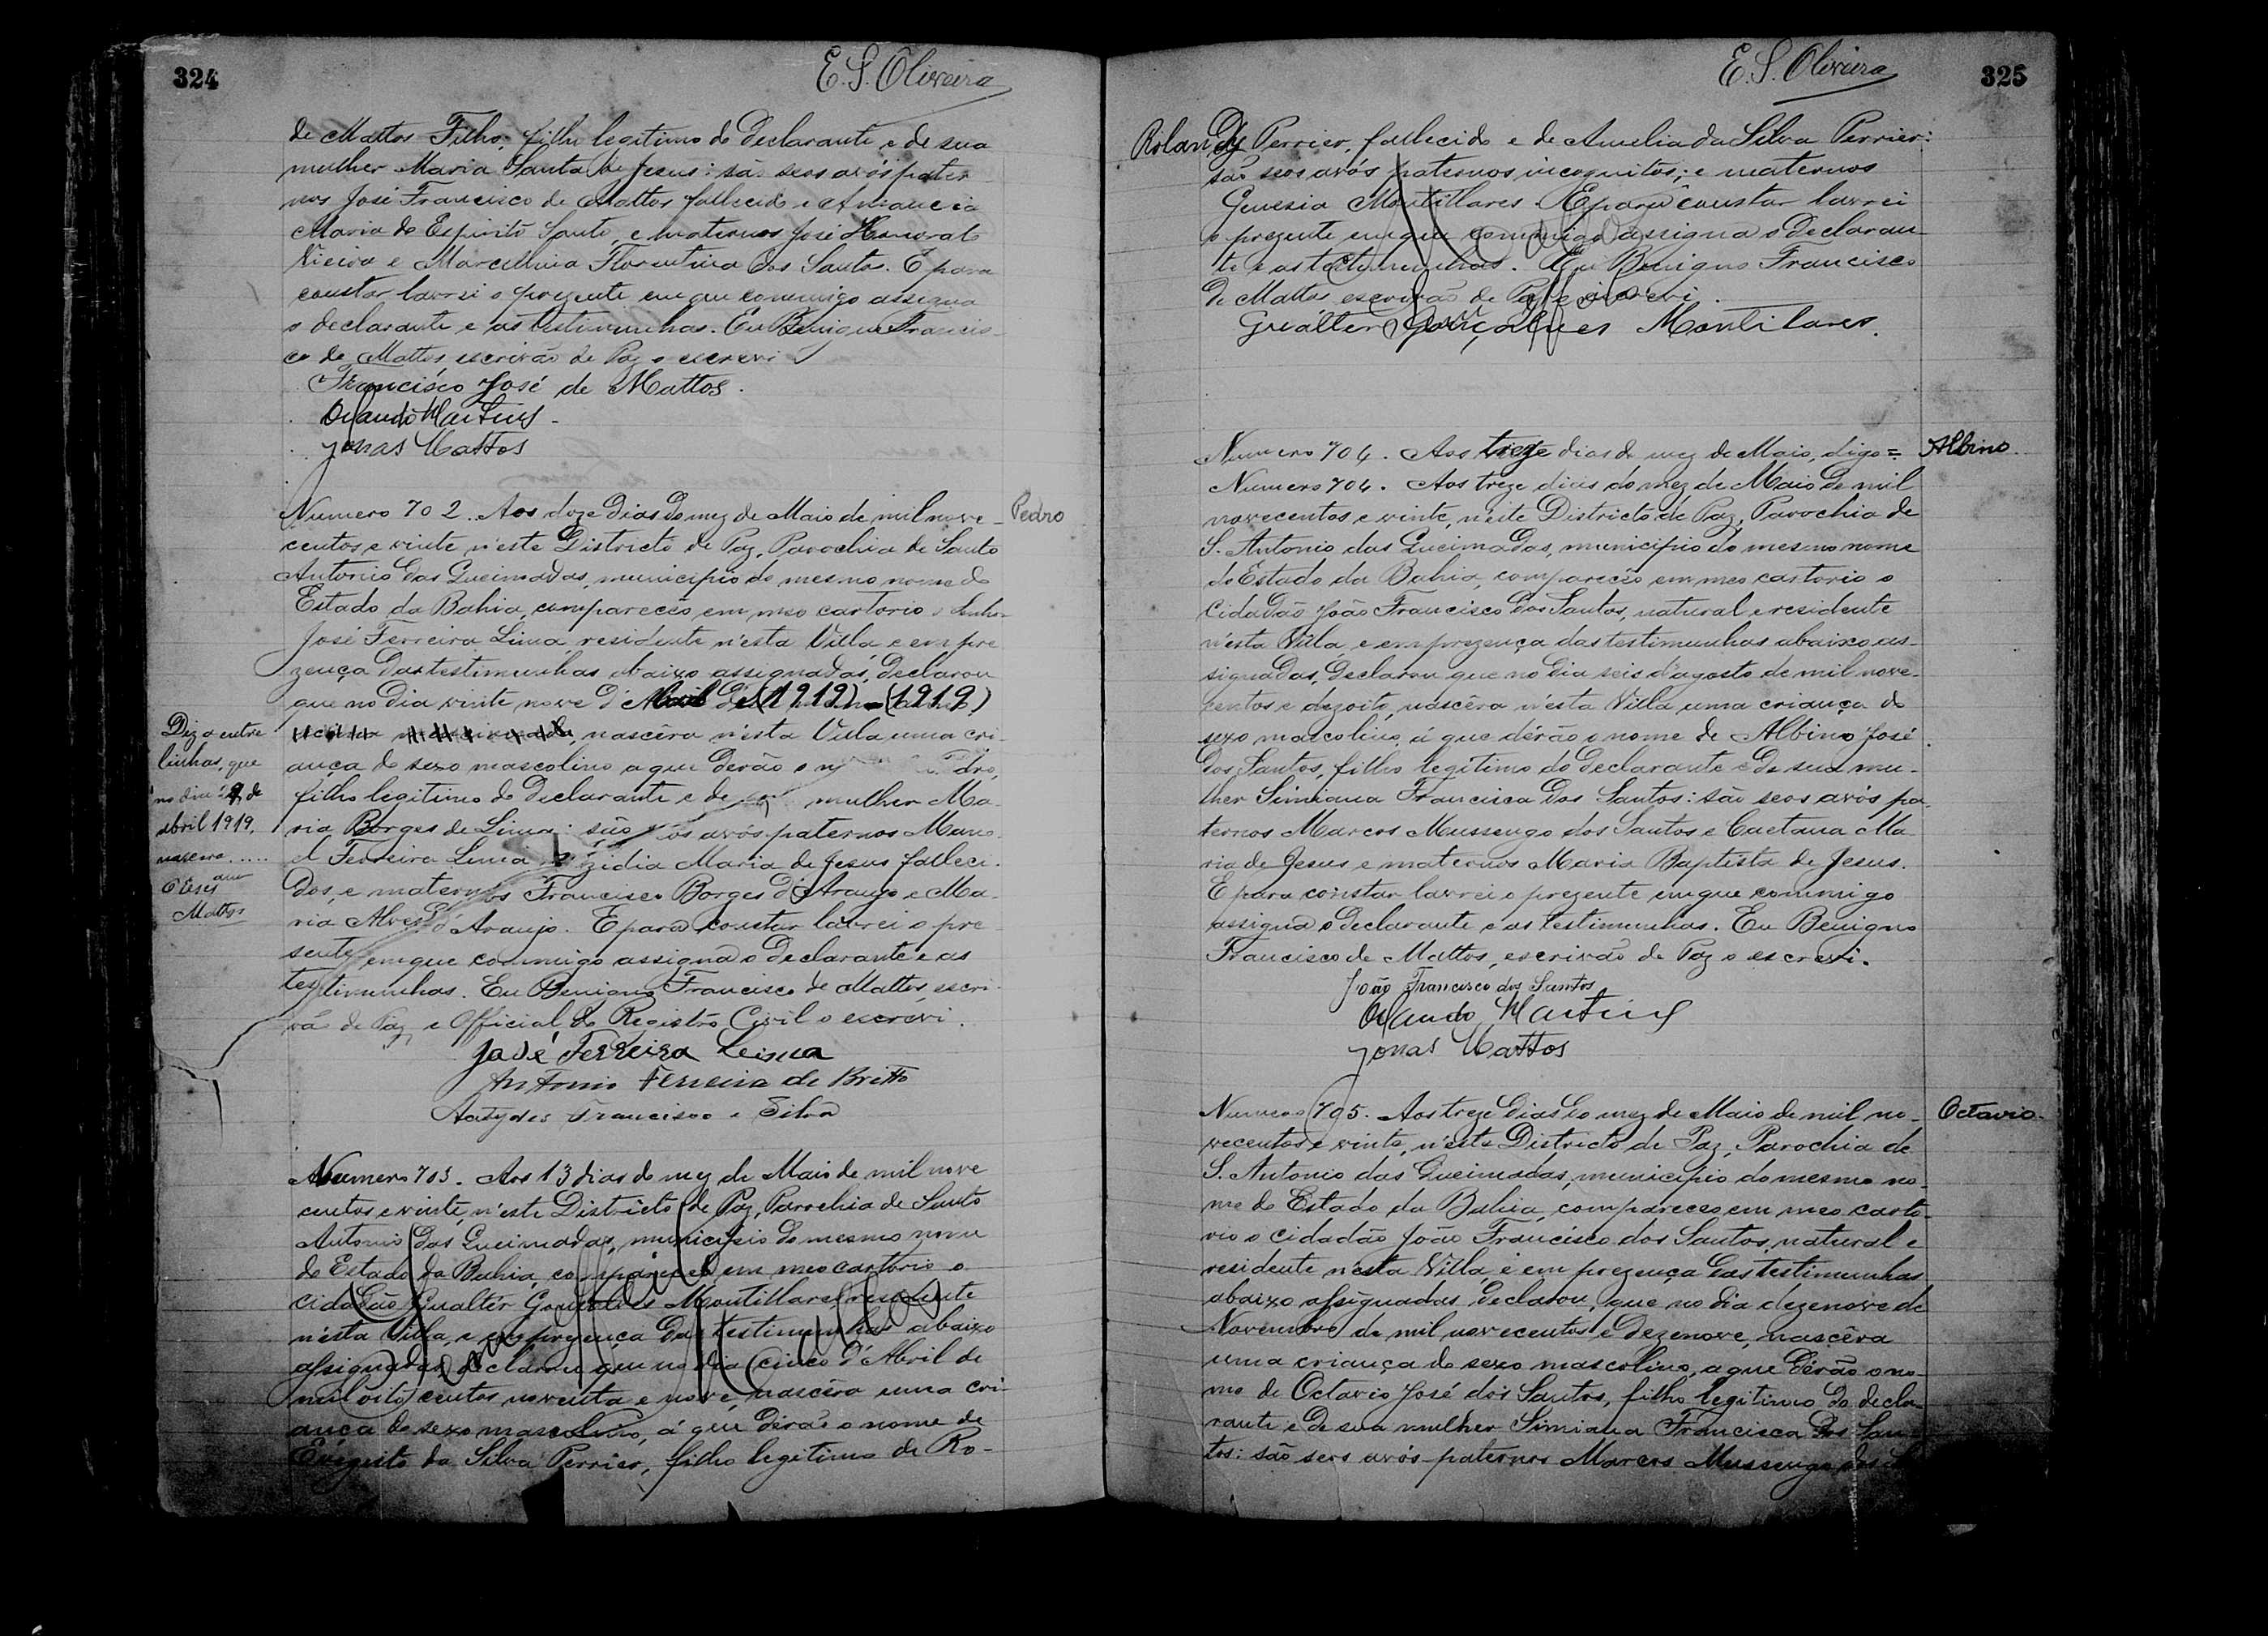 324
E. S. Oliveira
de Mattos Filho, filho legitimo do declarante e de sua
mulher Maria Santa de Jesus: são seos avós pater
nos José Francisco de Mattos fallecido e Amancia
Maria do Espirito Santo, e maternos José Honorato
Vieira e Marcellina Florentina dos Santos. E para
constar lavrei o prezente em que commigo assigna
o declarante e as testimunhas. Eu Benigno Francis-
co de Mattos escrivão de Paz o escrevi
Francisco José de Mattos.
Orlando Martins
Jonas Mattos
Numero 702. Aos doze dias do mez de Maio de mil nove-
Pedro
centos e vinte n'este Districto de Paz, Parochia de Santo
Antonio das Queimadas, municipio do mesmo nome do
Estado da Bahia, compareceo em meo cartorio o Senhor
José Ferreira Lima, residente n'esta Villa, e em pre
zença das testimunhas abaixo assignadas, declarou
que no dia vinte nove d' Abril de (1919) (1919)
nascêra n'esta Villa uma cri
ança do sexo mascolino a que derão o dro,
filho legitimo do Declarante e de mulher Ma
ria Borges de Lima: são avós paternos Mano
el Ferreira Lima Maria de Jesus falleci-
dos, e maternos Francisco Borges d'Araujo e Ma-
ria Alves d'Araujo. E para constar lavrei o pre
sente em que commigo assigna o Declarante e as
testimunhas. Eu Benigno Francisco de Mattos, escri-
vão de Paz e Official do Registro Civil o escrevi.
José Ferreira Lima
Antonio Ferreira de Britto
Francisco e Silva
Digo entre
linhas, que
no dia 29 de
abril 1919,
nascera.....
Mattos
Numero 703. Aos 13 dias do mez de Maio de mil nove
centos e vinte, n'este Districto de Paz, Parochia de Santo
Antonio das Queimadas, municipio do mesmo nome
do Estado da Bahia, compareceo em meo cartorio o
cidadão Gualter Gonçalves Montillares residente
n'esta Villa, e em prezença das testimunhas abaixo
assignadas, declarou que no dia cinco d'Abril de
mil oito centos noventa e nove, nascêra uma cri-
ança do sexo mascolino, á que derão o nome de
Evigisto da Silva Perrier, filho legitimo de Ro-
325
E. S. Oliveira
Rolandy Perrier, fallecido e de Amelia da Silva Perrier:
são seos avós paternos incognitos; e maternos
Genesia Montillares. E para constar lavrei
o prezente em que commigo assigna o Declaran-
te e as testimunhas. Eu Benigno Francisco
de Mattos, escrivão de Paz o escrevi.
Gualter Gonçalves Montilares.
Numero 704. Aos treze dias do mez de Maio, digo=
Albino
Numero 704. Aos treze dias do mez de Maio de mil
novecentos e vinte, n'este Districto de Paz, Parochia de
S. Antonio das Queimadas, municipio do mesmo nome
do Estado da Bahia, compareceo em meo cartorio o
Cidadão João Francisco dos Santos, natural e residente
n'esta Villa, e em prezença das testimunhas abaixo as-
signadas, Declarou que no dia seis d'agosto de mil nove-
centos e dezoito, nascêra n'esta Villa uma criança do
sexo mascolino, á que dérão o nome de Albino José
dos Santos, filho legitimo do declarante e de sua mu-
lher Simiana Francisca dos Santos: são seos avós pa-
ternos Marcos Mussengo dos Santos e Caetana Ma
ria de Jesus e maternos Maria Baptista de Jesus.
E para constar lavrei o prezente em que commigo
assigna o Declarante e as testimunhas. Eu Benigno
Francisco de Mattos, escrivão de Paz o escrevi.
João Francisco dos Santos
Orlando Martins
Jonas Mattos
Numero 705. Aos treze dias do mez de Maio de mil no-
Octavio
vecentos e vinte, n'este Districto de Paz, Parochia de
S. Antonio das Queimadas, municipio do mesmo no-
me do Estado da Bahia, compareceo em meo carto-
rio o Cidadão João Francisco dos Santos, natural e
residente n'esta Villa e em prezença das testimunhas
abaixo assignadas, declarou, que no dia dezenove de
Novembro de mil novecentos e dezenove, nascêra
uma criança do sexo mascolino, a que dérão o no-
me de Octavio José dos Santos, filho legitimo do decla-
rante e de sua mulher Simiana Francisca dos San
tos: são seos avós paternos Marcos Mussengo dos